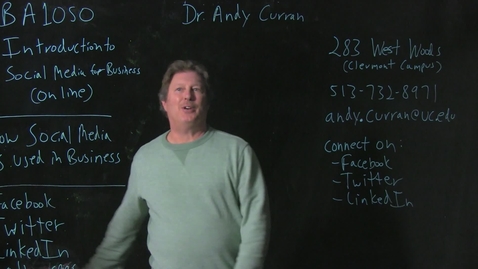 BA1050
Introduction to
Social Media for Business
(online)
ow Social Media
s used in Business
Facebook
Twitter
LinkedIn
Dr. Andy Curran
283 West Woods
(Clermont Campus)
513-732-8971
andy.curran@uc.edu
connect on:
-Facebook
-Twitter
-LinkedIn